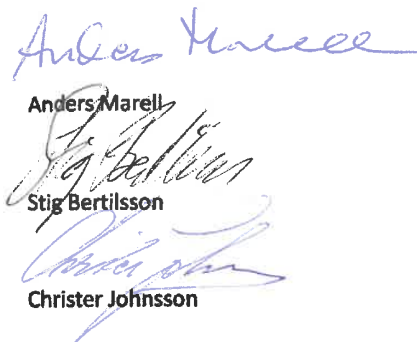 Anders Marell
Anders Marell
Stig Bertilsson
Stig Bertilsson
Christer Johnsson
Christer Johnsson